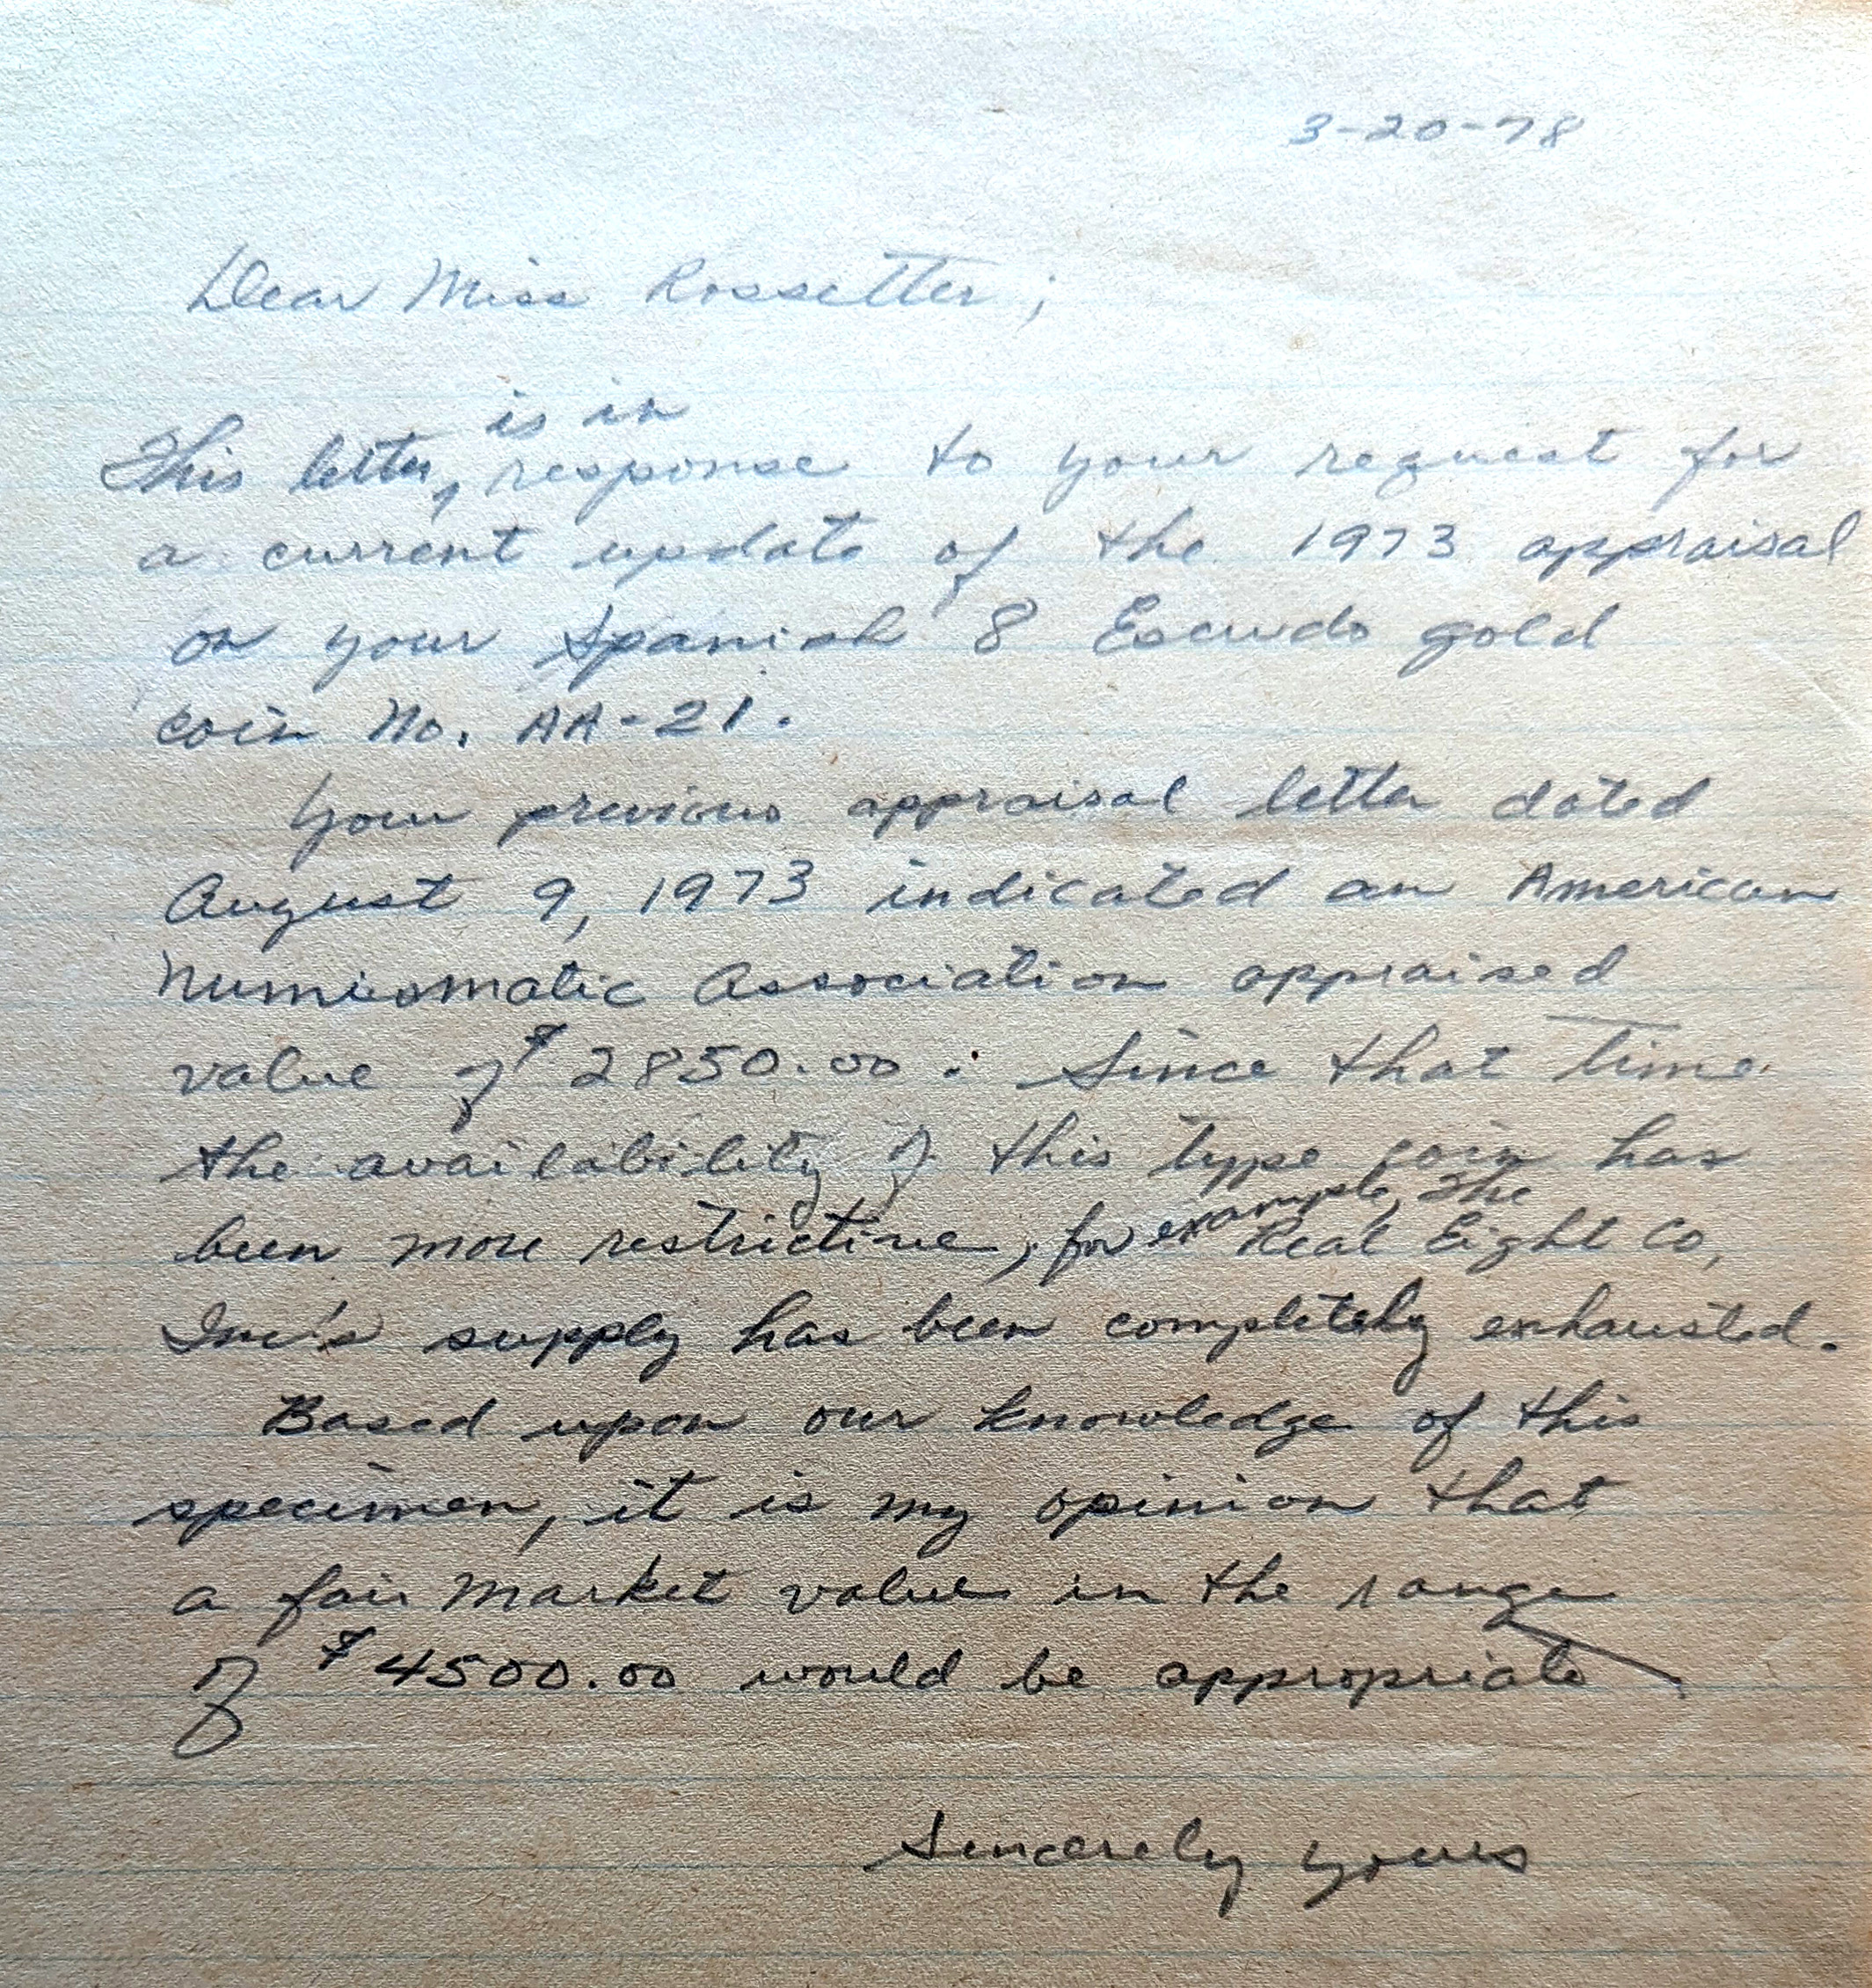 3-20-78
Dear Miss Rossetter;
is in
This letter, response to your request for
a current update of the 1973 appraisal
on your Spanish 8 Escudo gold
coin No. AA-21.
Your previous appraisal letter dated
August 9, 1973 indicated an American
Numismatic Association appraised
value of $2850.00. Since that time
the availability of this type coin has
been more restrictive, for example, the Real Eight Co,
Inc's supply has been completely exhausted.
Based upon our knowledge of this
specimen, it is my opinion that
a fair market value in the range
of $4500.00 would be appropriate
Sincerely yours